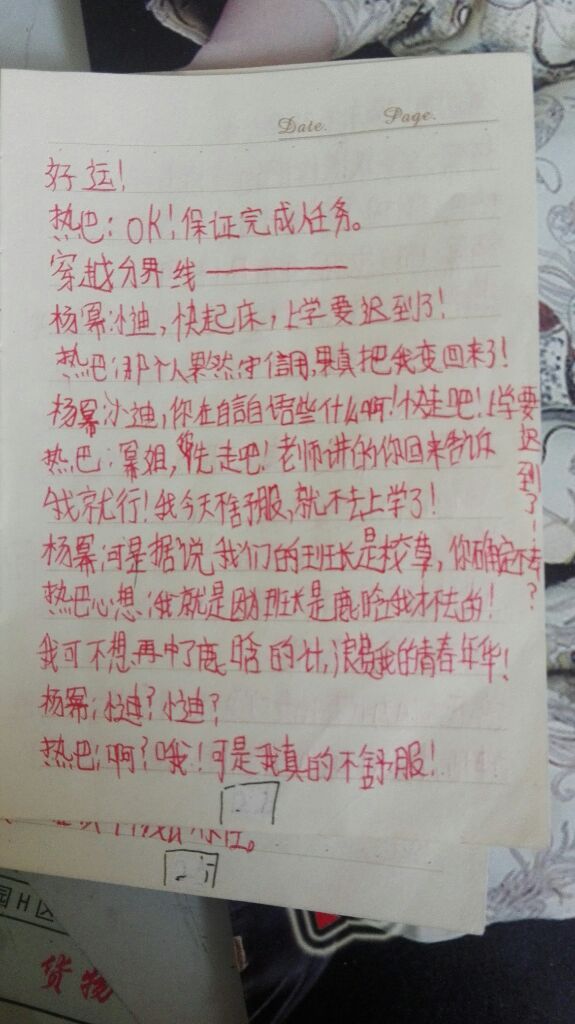 Date. Page.
好运!
热巴:OK!保证完成任务。
穿越分界线————
杨幂:小迪,快起床,上学要迟到了!
热巴:那个人果然守信用,果真把我变回来了!
杨幂:小迪,你在自言自语些什么啊!快走吧!上学要迟到了!
热巴:幂姐,你先走吧!老师讲的你回来告诉
我就行!我今天不舒服,就不去上学了!
杨幂:可是据说我们的班长是校草,你确定不去?
热巴心想:我就是因为班长是鹿晗我才不去的!
我可不想再中了鹿晗的计,浪费我的青春年华!
杨幂:小迪?小迪?
热巴:啊?哦!可是我真的不舒服!
货物